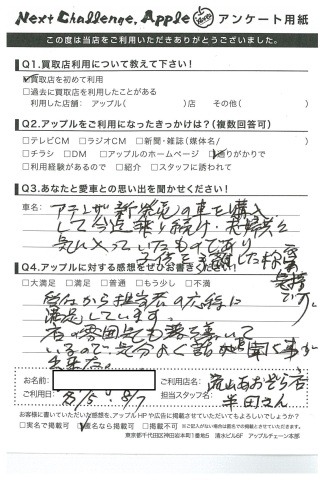 Next Challenge, Apple アンケート用紙
この度は当店をご利用いただきありがとうございました。
Q1.買取店利用について教えて下さい!
☑買取店を初めて利用
□過去に買取店を利用したことがある
利用した店舗: アップル( )店 その他( )
Q2.アップルをご利用になったきっかけは?(複数回答可)
□テレビCM □ラジオCM □新聞・雑誌(媒体名/ )
□チラシ □DM □アップルのホームページ ☑通りがかりで
□利用経験があるので □紹介 □スタッフに誘われて
Q3.あなたと愛車との思い出を聞かせください!
車名: アテンザ 新発売の車を購入
して今迄乗り続け、夫婦共々
気に入っていたものであり
子供を手離した様な気持
です。
Q4.アップルに対する感想をぜひお書きください!
□大満足 □満足 □普通 □もう少し □不満
担当者の
満足しています。
店の雰囲気も落ち着いて
いるので、気分よく話が聞く事が
出来た。
お名前:
ご利用日: 8/5、8/7
ご利用店名: 流山あおぞら店
担当スタッフ名: 半田さん
お客様に書いていただいた感想を、アップルHPや広告に掲載させていただいてもよろしいでしょうか?
□実名で掲載可 ☑匿名なら掲載可 □掲載不可 ※ご記入がない場合は匿名での掲載とさせていただきます。
東京都千代田区神田岩本町1番地5 清水ビル6F アップルチェーン本部